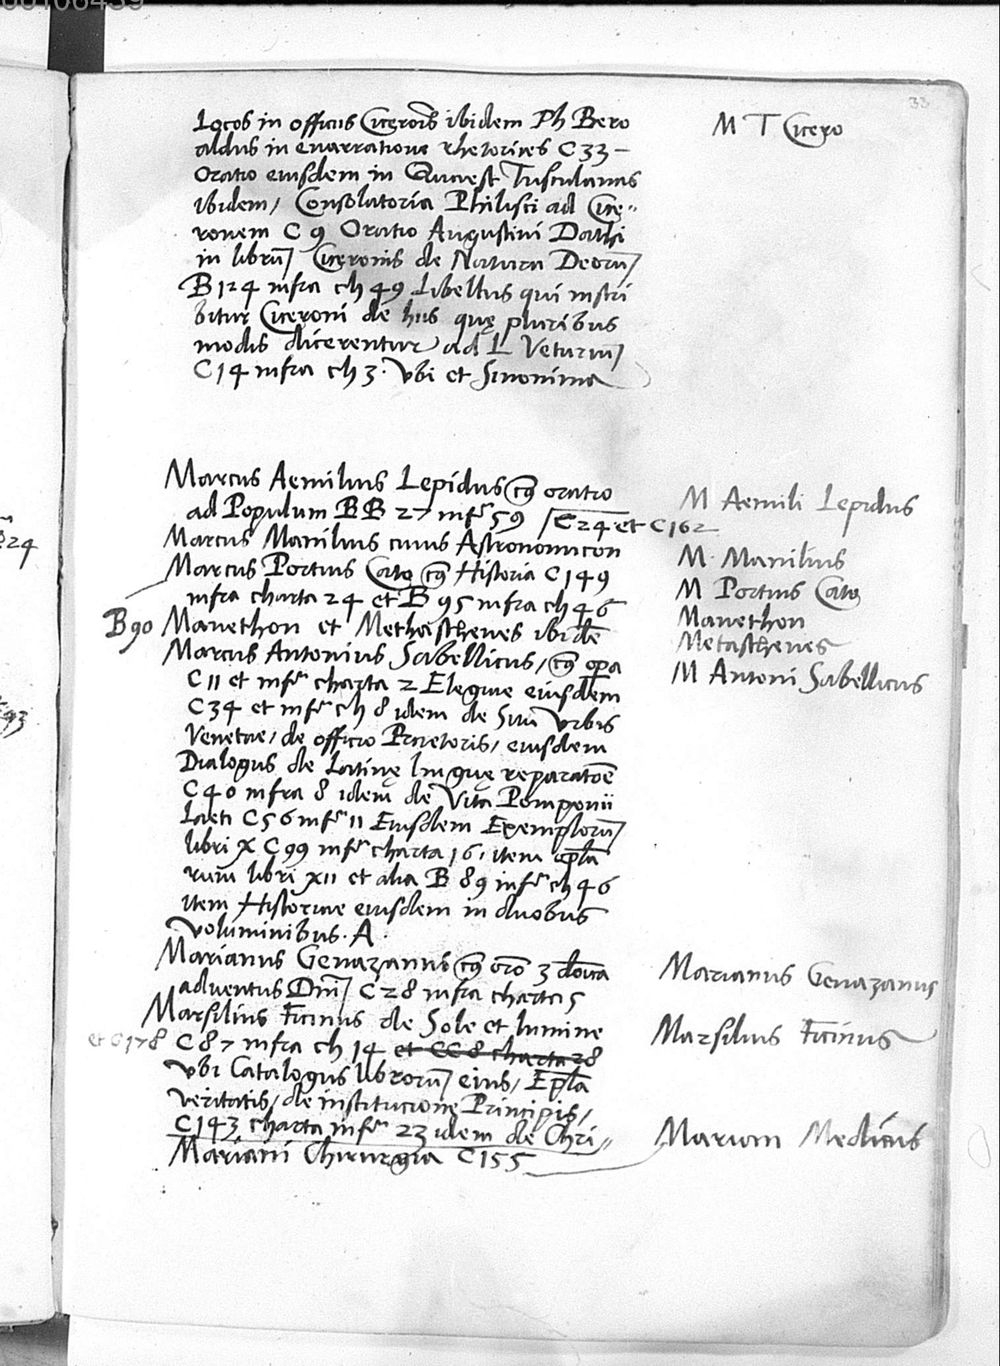 00106439
33
Locos in officiis Ciceronis ibidem Ph Bero
M T Cicero
aldus in enarratione rhetorices C 33 –
Oratio eiusdem in Quaest Tusculanas
ibidem / Consolatoria Philisci ad Cice-
ronem C 9 Oratio Augustini Dathi
in libru Ciceronis de Natura Deoru
B 124 infra ch 49 Libellus qui inscri
bitur Ciceroni de hiis quę pluribus
modis dicerentur ad L Veturiu
C 14 infra ch 3. Vbi et Sinonima
Marcus Aemilius Lepidus cuius oratio
M Aemili Lepidus
ad Populum BB 27 infr 59 / C 24 et C 162
Marcus Manilius cuius Astronomicon
M. Manilius
Marcus Portius Cato cuius Historia C 149
M Portius Cato
infra charta 24 et B 95 infra ch 46
B 90 Manethon et Methasthenes ibidē
Manethon
Metasthenes
Marcus Antonius Sabellicus / cuius opa
M Antoni Sabellicus
C 11 et infr charta 2 Elegiae eiusdem
C 34 et infr ch 8 idem de Situ Vrbis
Venetae / de officio Praetoris / eiusdem
Dialogus de Latinę linguę reparatoē
C 40 infra 8 idem de Vita Pomponii
Laeti C 56 infr 11 Eiusdem Exemploru
libri X C 99 infr charta 16. item epla
rum libri XII et alia B 89 infr ch 46
item Historiae eiusdem in duobus
Voluminibus. A.
Marianus Genazanus cuius oro 3 doīca
Marianus Genazanus
adventus Dni C 28 infra charta 5
Marsilius Ficinus de Sole et lumine
Marsilius Ficinus
et C 178 C 87 infra ch 14 et CC 8 charta 28
Vbi Catalogus libroru eius / Epla
veritatis / de institucione Principis /
C 143 charta infr 23 idem de Chri-
Mariani Chirurgia C 155
Mariani Medicus